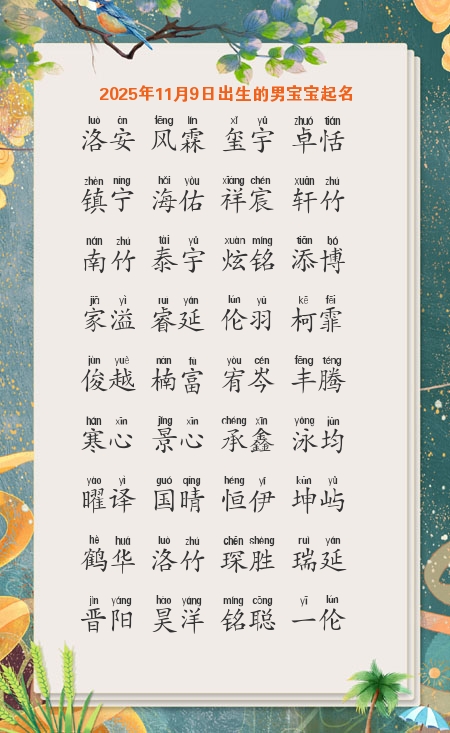 2025年11月9日出生的男宝宝起名
luò ān fēng lín xǐ yǔ zhuó tián
洛安 风霖 玺宇 卓恬
zhèn níng hǎi yòu xiáng chén xuān zhú
镇宁 海佑 祥宸 轩竹
nán zhú tài yǔ xuàn míng tiān bó
南竹 泰宇 炫铭 添博
jiā yì ruì yán lún yǔ kē fēi
家溢 睿延 伦羽 柯霏
jùn yuè nán fù yòu cén fēng téng
俊越 楠富 宥岑 丰腾
hán xīn jǐng xīn chéng xīn yǒng jūn
寒心 景心 承鑫 泳均
yào yì guó qíng héng yī kūn yǔ
曜译 国晴 恒伊 坤屿
hè huá luò zhú chēn shèng ruì yán
鹤华 洛竹 琛胜 瑞延
jìn yáng hào yáng míng cōng yī lún
晋阳 昊洋 铭聪 一伦